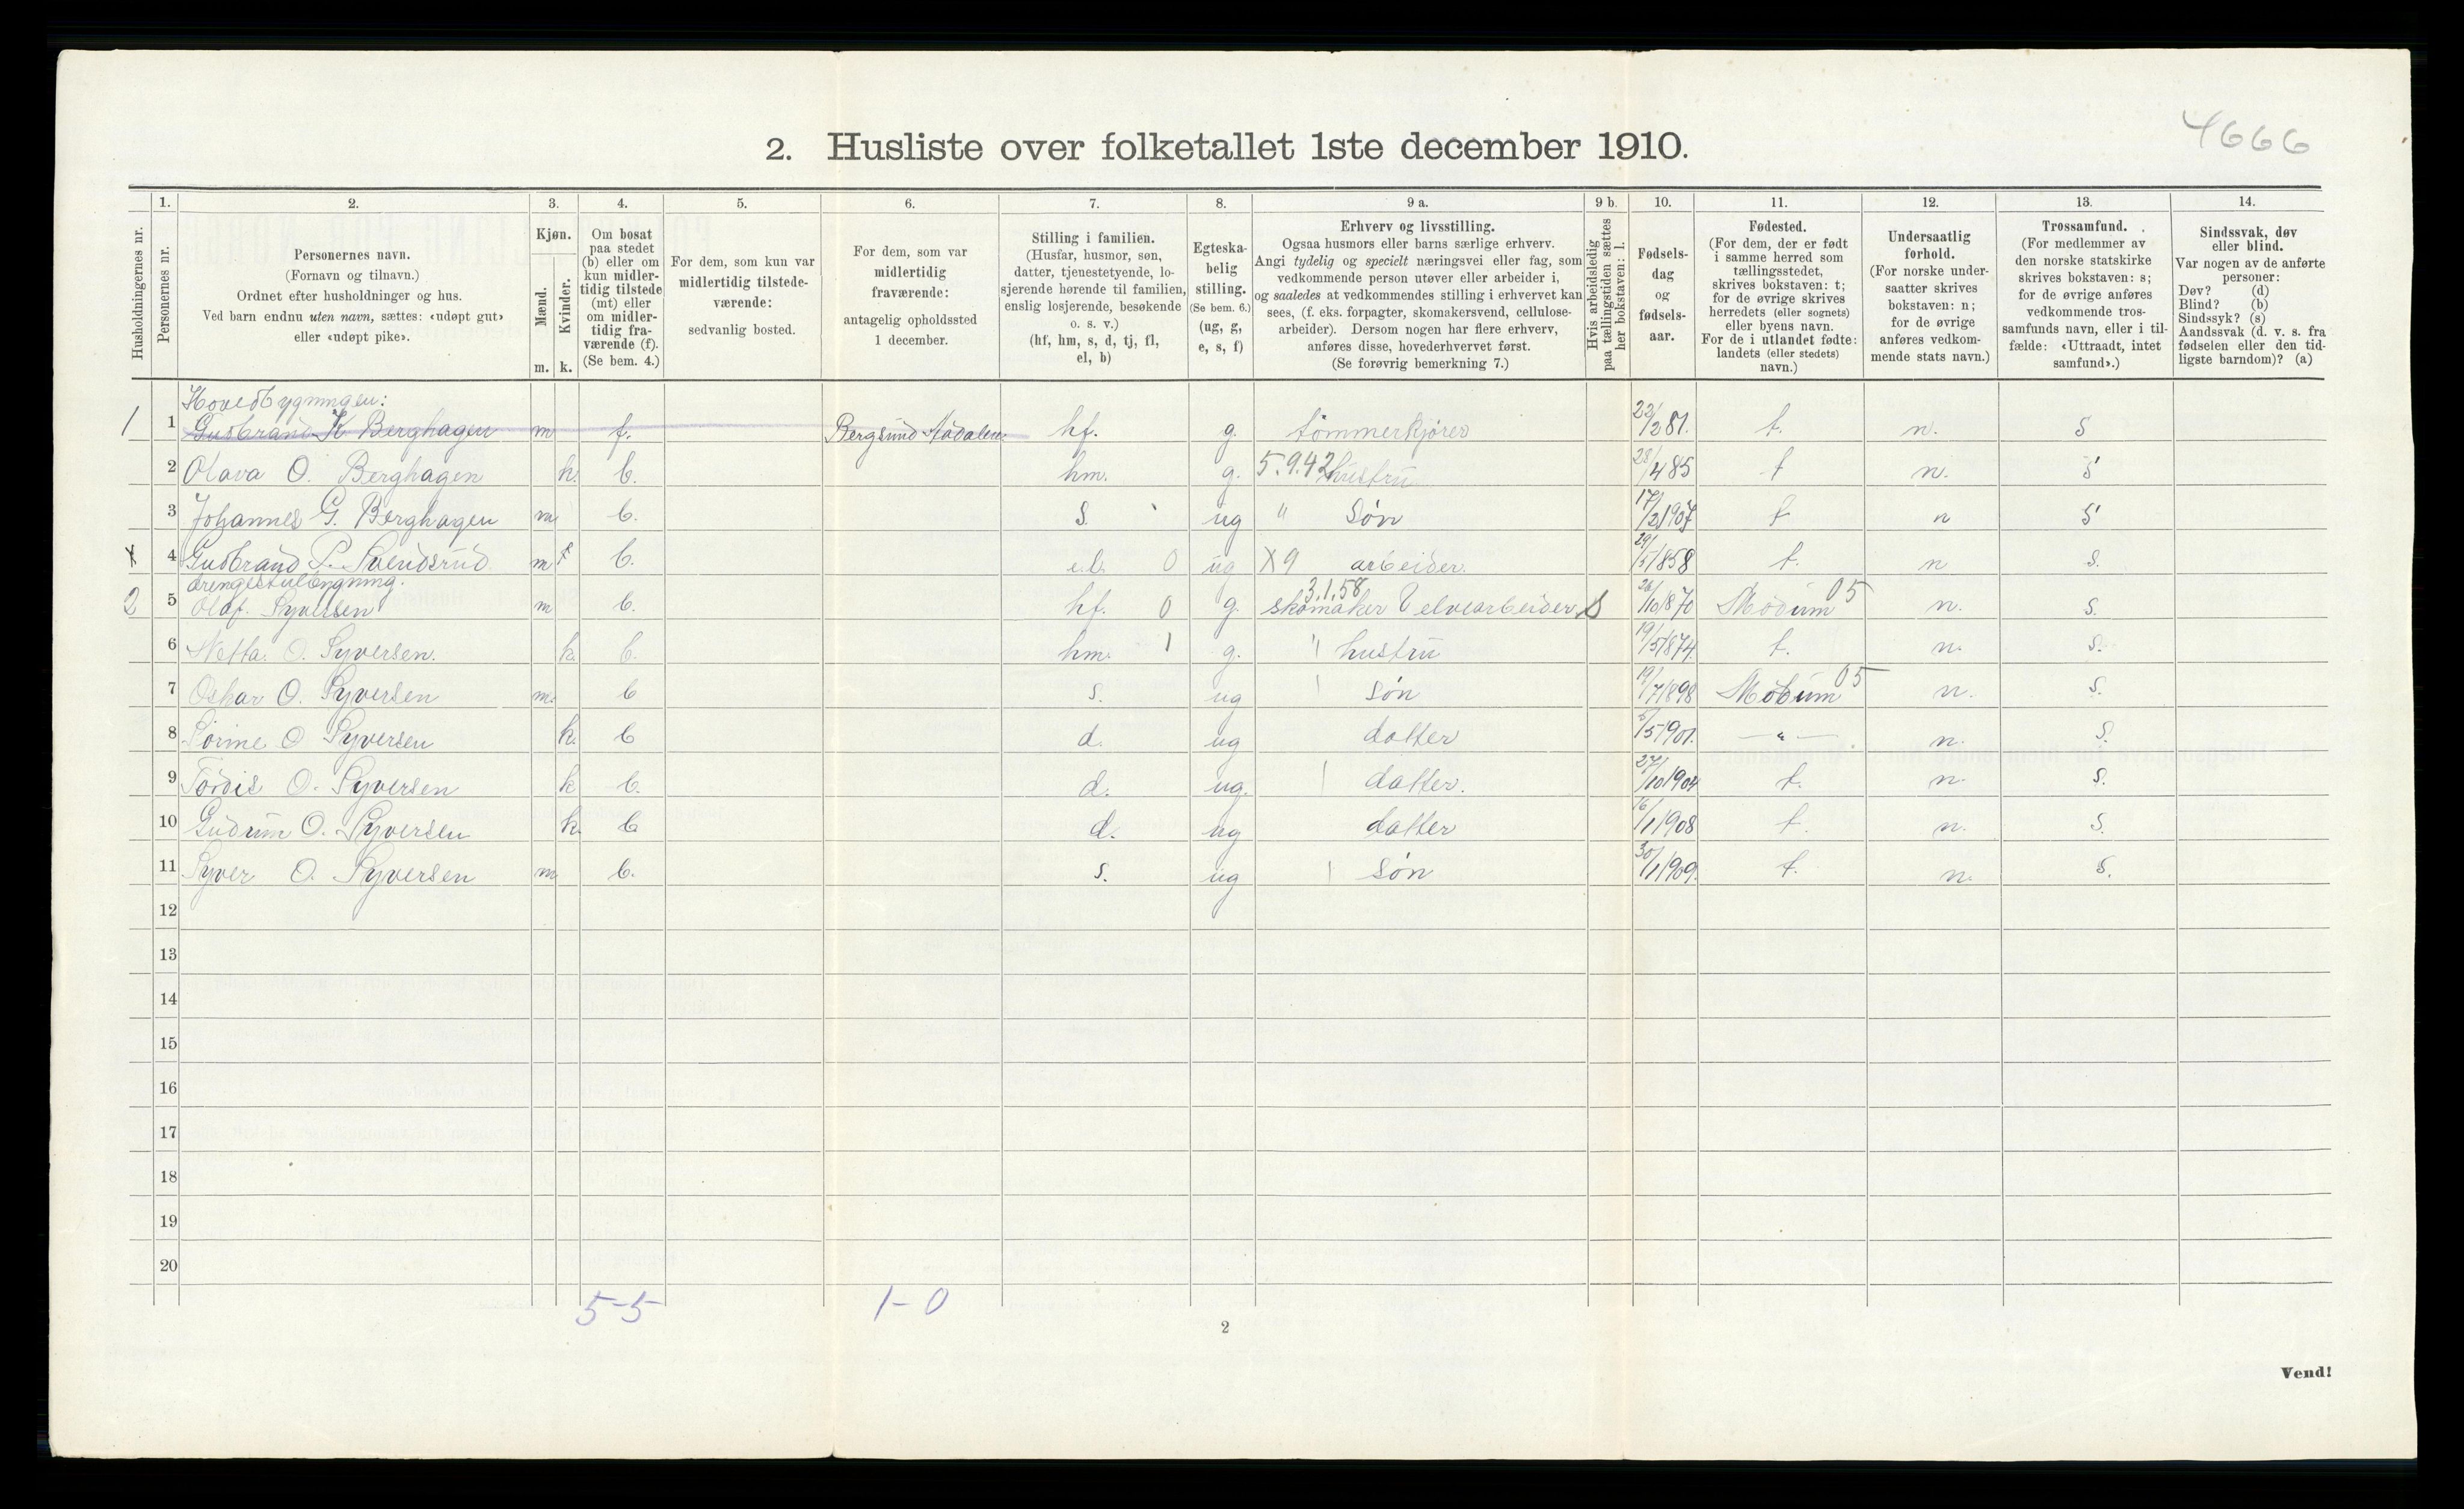 4666
2. Husliste over folketallet 1ste december 1910.
Husholdningernes nr.
1. Personernes nr.
2. Personernes navn.
(Fornavn og tilnavn.)
Ordnet efter husholdninger og hus.
Ved barn endnu uten navn, sættes: «udøpt gut»
eller «udøpt pike».
3. Kjøn.
Mænd. m.
Kvinder. k.
4. Om bosat
paa stedet
(b) eller om
kun midler-
tidig tilstede
(mt) eller
om midler-
tidig fra-
værende (f).
(Se bem. 4.)
5. For dem, som kun var
midlertidig tilstede-
værende:
sedvanlig bosted.
6. For dem, som var
midlertidig
fraværende:
antagelig opholdssted
1 december.
7. Stilling i familien.
(Husfar, husmor, søn,
datter, tjenestetyende, lo-
sjerende hørende til familien,
enslig losjerende, besøkende
o. s. v.)
(hf, hm, s, d, tj, fl,
el, b)
8. Egteska-
belig
stilling.
(Se bem. 6.)
(ug, g,
e, s, f)
9 a. Erhverv og livsstilling.
Ogsaa husmors eller barns særlige erhverv.
Angi tydelig og specielt næringsvei eller fag, som
vedkommende person utøver eller arbeider i,
og saaledes at vedkommendes stilling i erhvervet kan
sees, (f. eks. forpagter, skomakersvend, cellulose-
arbeider). Dersom nogen har flere erhverv,
anføres disse, hovederhvervet først.
(Se forøvrig bemerkning 7.)
9 b. Hvis arbeidsledig
paa tællingstiden sættes
her bokstaven: l.
10. Fødsels-
dag
og
fødsels-
aar.
11. Fødested.
(For dem, der er født
i samme herred som
tællingsstedet,
skrives bokstaven: t;
for de øvrige skrives
herredets (eller sognets)
eller byens navn.
For de i utlandet fødte:
landets (eller stedets)
navn.)
12. Undersaatlig
forhold.
(For norske under-
saatter skrives
bokstaven: n;
for de øvrige
anføres vedkom-
mende stats navn.)
13. Trossamfund.
(For medlemmer av
den norske statskirke
skrives bokstaven: s;
for de øvrige anføres
vedkommende tros-
samfunds navn, eller i til-
fælde: «Uttraadt, intet
samfund».)
14. Sindssvak, døv
eller blind.
Var nogen av de anførte
personer:
Døv? (d)
Blind? (b)
Sindssyk? (s)
Aandssvak (d. v. s. fra
fødselen eller den tid-
ligste barndom)? (a)
Hovedbygningen:
1 1 Gudbrand K Berghagen m f. Bergsund Aadalen hf. g. tømmerkjører 22/2 81. t. n. s
2 Olava O. Berghagen k. b. hm. g. 5.9.42 hustru 28/4 85 t n. s
3 Johannes G. Berghagen m b. s. ug " søn 17/2 1907 t n s
x 4 Gudbrand P. Svendsrud m b. el. 0 ug X9 arbeider. 29/5 1858 t. n s.
drengestubygning.
3.1.58
2 5 Olaf Syversen m b. hf. 0 g. skomaker elvearbeider s 26/10 1870 Modum 05 n. s.
6 Netta O. Syversen. k b. hm. 1 g. " hustru 19/5 1874. t. n. s.
7 Oskar O. Syversen m. b s. ug søn 19/7 1898 Modum 05 n. s.
8 Sørine O Syversen k. b d. ug datter 5/5 1901. — " — n. s.
9 Tordis O. Syversen k b. d. ug. datter. 27/10 1904 t. n. s.
10 Gudrun O. Syversen k. b d. ug datter 16/1 1908 t. n. s.
11 Syver O. Syversen m b. s. ug søn 30/1 1909. t. n. s.
12
13
14
15
16
17
18
19
20
5-5 1-0
2
Vend!